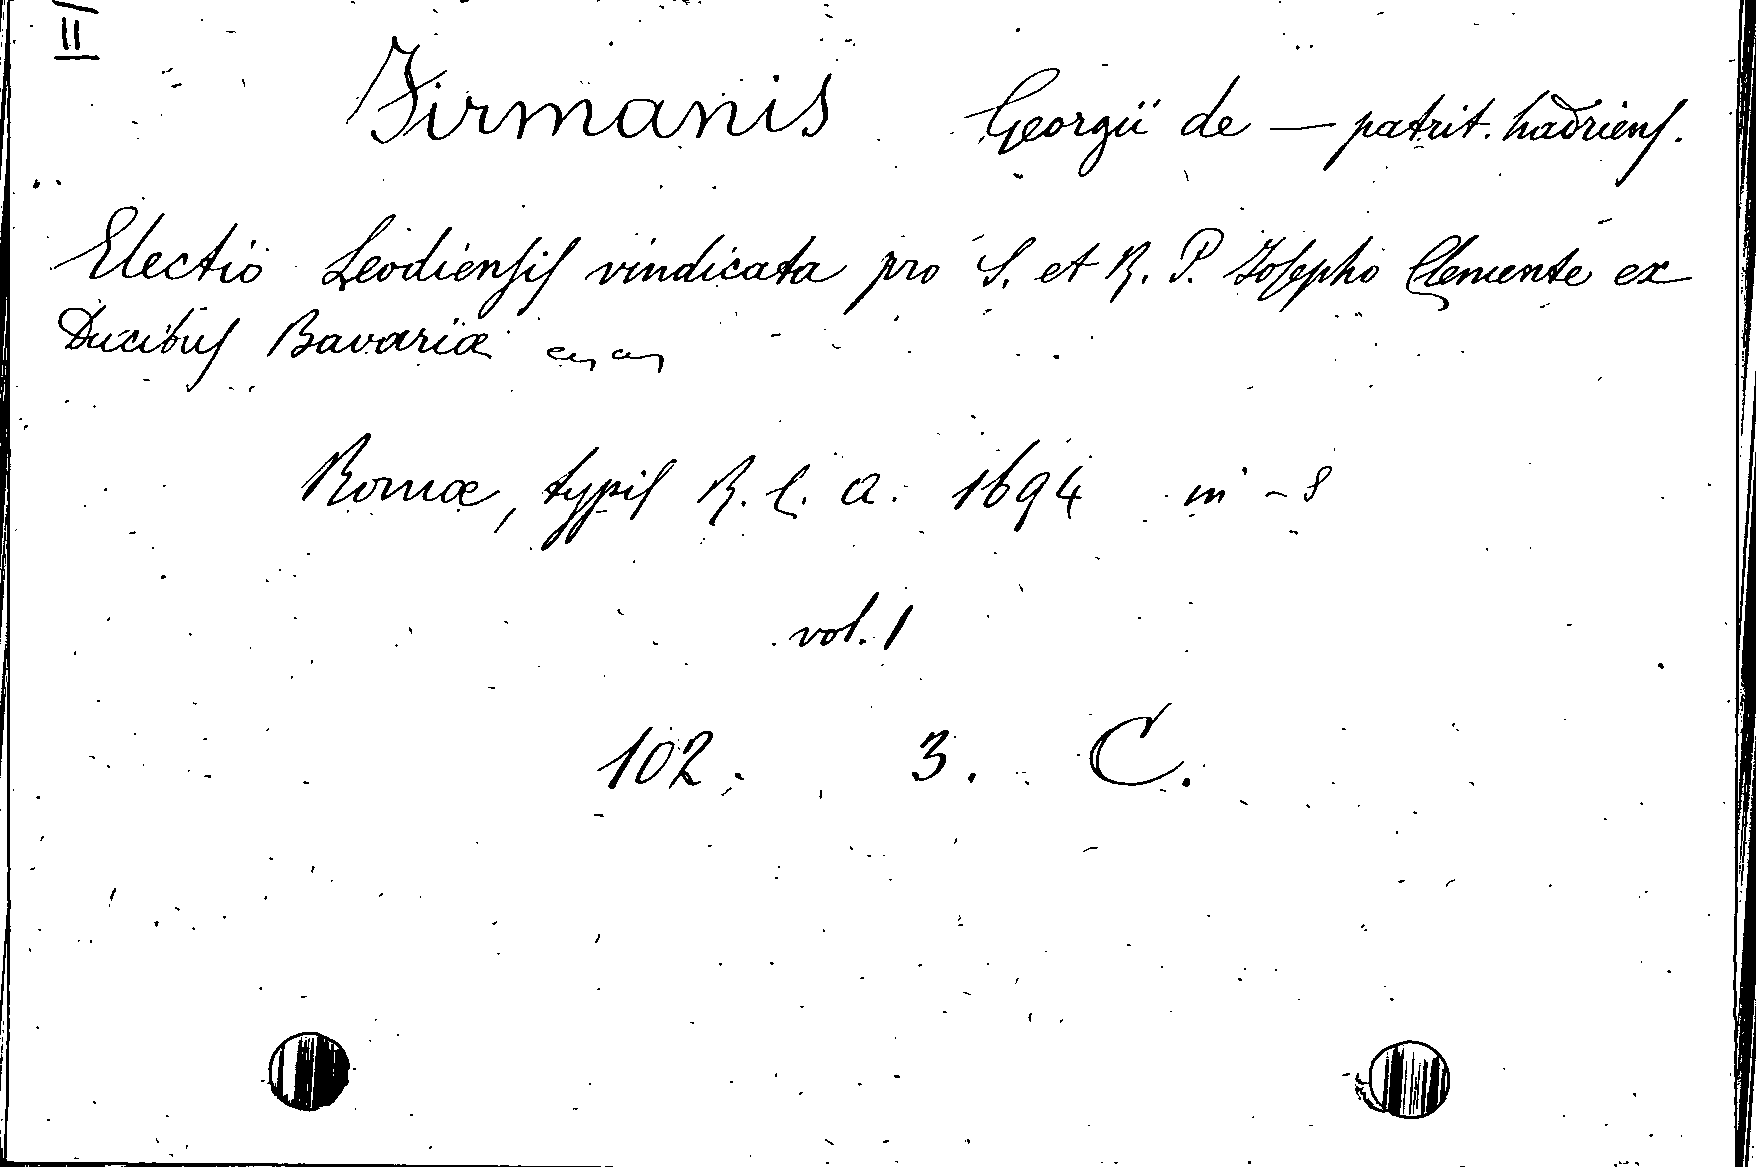 II
Firmanis Georgii de — patrit. hadriens.
Electio Leodiensis vindicata pro S. et R. P. Josepho Clemente ex
Ducibus Bavariæ
Romæ, typis R. C. A. 1694 in -8
vol. 1
102. 3. C.